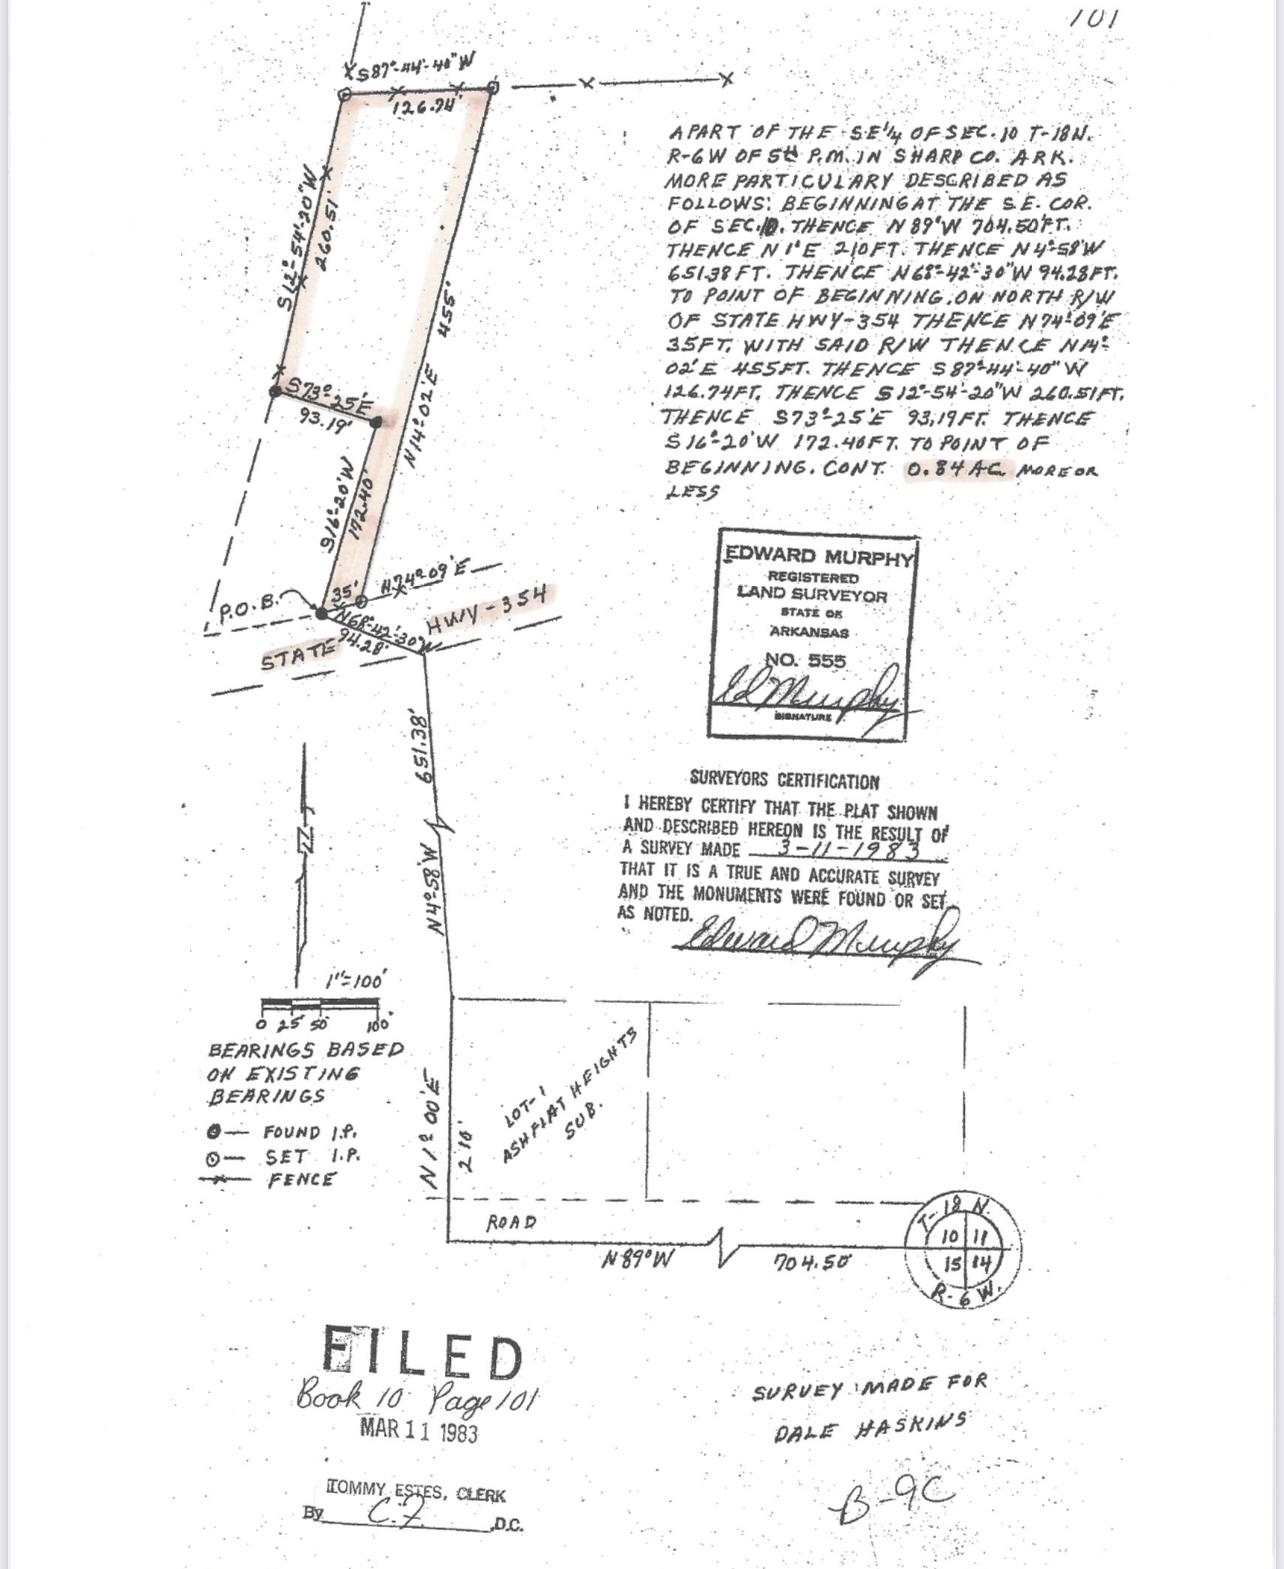 101
S87°-44'-40"W
126.74'
S12°-54'-20"W
260.51'
N14°-02'E 455'
S73°-25'E
93.19'
S16°-20'W
172.40'
P.O.B.
35'
N74°09'E
N68°-42'-30"W
94.28'
STATE HWY-354
A PART OF THE SE¼ OF SEC. 10 T-18N.
R-6W OF 5th P.M. IN SHARP CO. ARK.
MORE PARTICULARY DESCRIBED AS
FOLLOWS: BEGINNING AT THE S.E. COR.
OF SEC. 10. THENCE N 89°W 704.50FT.
THENCE N 1°E 210FT. THENCE N4°-58'W
651.38 FT. THENCE N68°-42'-30"W 94.28FT.
TO POINT OF BEGINNING. ON NORTH R/W
OF STATE HWY-354 THENCE N74°09'E
35FT. WITH SAID R/W THENCE N14°-
02'E 455FT. THENCE S87°-44'-40"W
126.74FT. THENCE S12°-54'-20"W 260.51FT.
THENCE S73°-25'E 93.19FT. THENCE
S16°-20'W 172.40FT. TO POINT OF
BEGINNING. CONT. 0.84 AC. MORE OR
LESS
EDWARD MURPHY
REGISTERED
LAND SURVEYOR
STATE OF
ARKANSAS
NO. 555
Ed Murphy
SIGNATURE
SURVEYORS CERTIFICATION
I HEREBY CERTIFY THAT THE PLAT SHOWN
AND DESCRIBED HEREON IS THE RESULT OF
A SURVEY MADE 3-11-1983
THAT IT IS A TRUE AND ACCURATE SURVEY
AND THE MONUMENTS WERE FOUND OR SET
AS NOTED.
Edward Murphy
651.38'
N4°-58'W
N
1"=100'
0 25' 50' 100'
BEARINGS BASED
ON EXISTING
BEARINGS
FOUND I.P.
SET I.P.
FENCE
N1°00'E
210'
LOT-1
ASH FLAT HEIGHTS
SUB.
ROAD
N89°W 704.50'
T-18 N.
10 11
15 14
R-6 W.
FILED
Book 10 Page 101
MAR 11 1983
TOMMY ESTES, CLERK
By C.F. D.C.
SURVEY MADE FOR
DALE HASKINS
B-9C